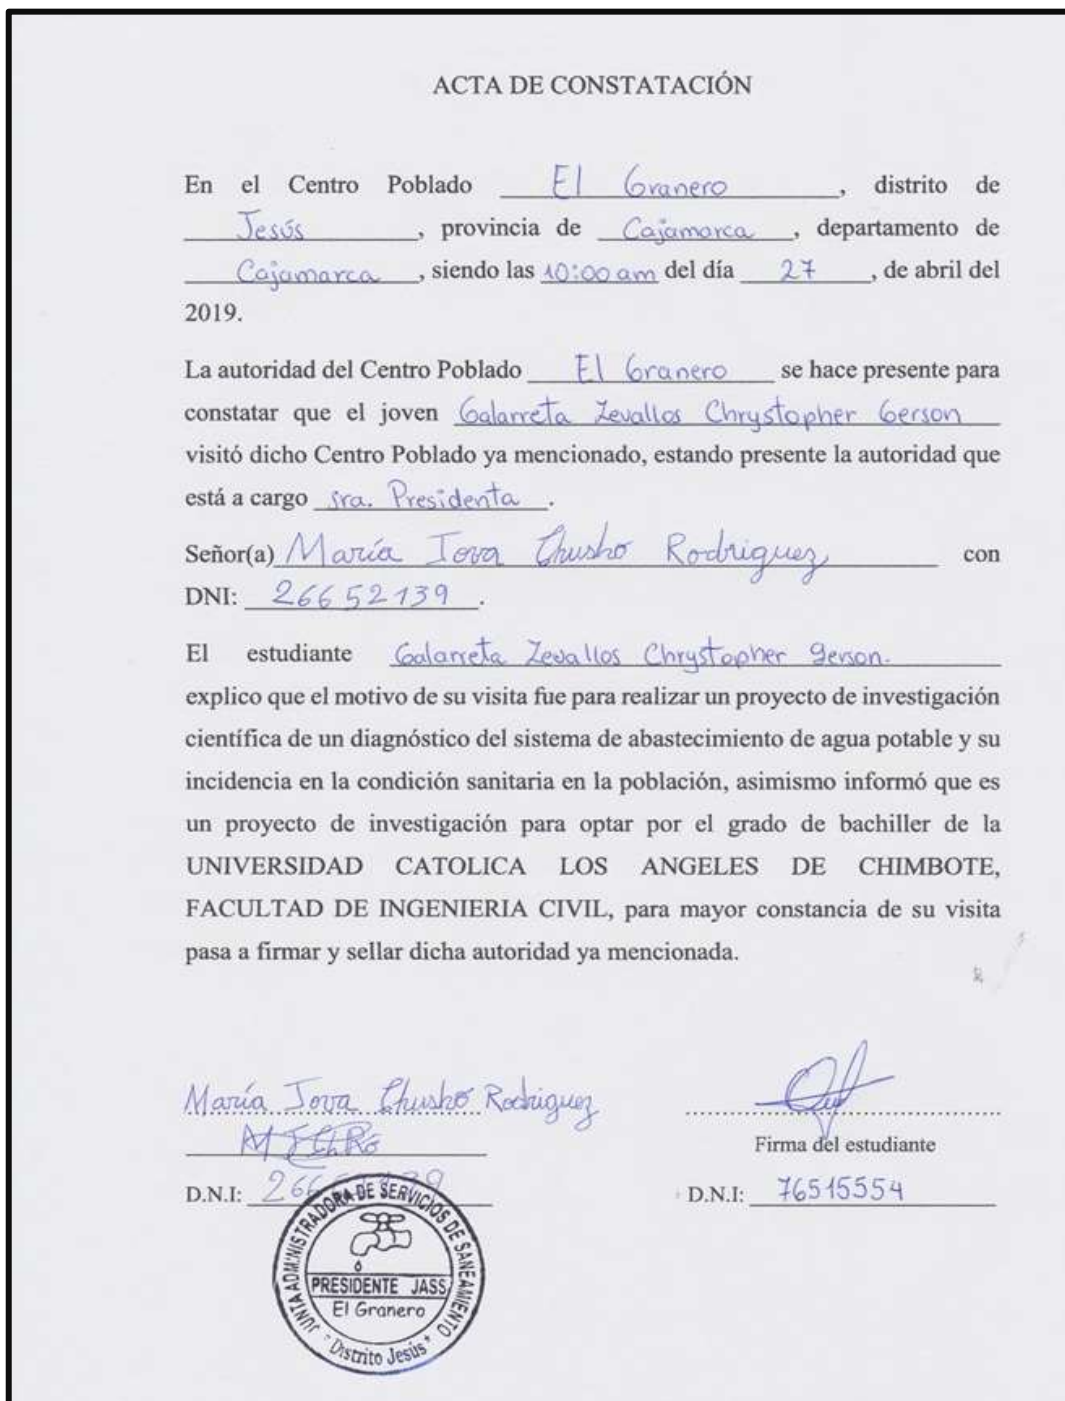 ACTA DE CONSTATACIÓN
En el Centro Poblado El Granero, distrito de
Jesús, provincia de Cajamarca, departamento de
Cajamarca, siendo las 10:00 am del día 27, de abril del
2019.
La autoridad del Centro Poblado El Granero se hace presente para
constatar que el joven Galarreta Zevallos Chrystopher Gerson
visitó dicho Centro Poblado ya mencionado, estando presente la autoridad que
está a cargo sra. Presidenta.
Señor(a) María Jova Chusho Rodriguez con
DNI: 26652139.
El estudiante Galarreta Zevallos Chrystopher Gerson.
explico que el motivo de su visita fue para realizar un proyecto de investigación
científica de un diagnóstico del sistema de abastecimiento de agua potable y su
incidencia en la condición sanitaria en la población, asimismo informó que es
un proyecto de investigación para optar por el grado de bachiller de la
UNIVERSIDAD CATOLICA LOS ANGELES DE CHIMBOTE,
FACULTAD DE INGENIERIA CIVIL, para mayor constancia de su visita
pasa a firmar y sellar dicha autoridad ya mencionada.
María Jova Chusho Rodriguez
Firma del estudiante
D.N.I: 26652139 D.N.I: 76515554
JUNTA ADMINISTRADORA DE SERVICIOS DE SANEAMIENTO
PRESIDENTE JASS
El Granero
"Distrito Jesús"